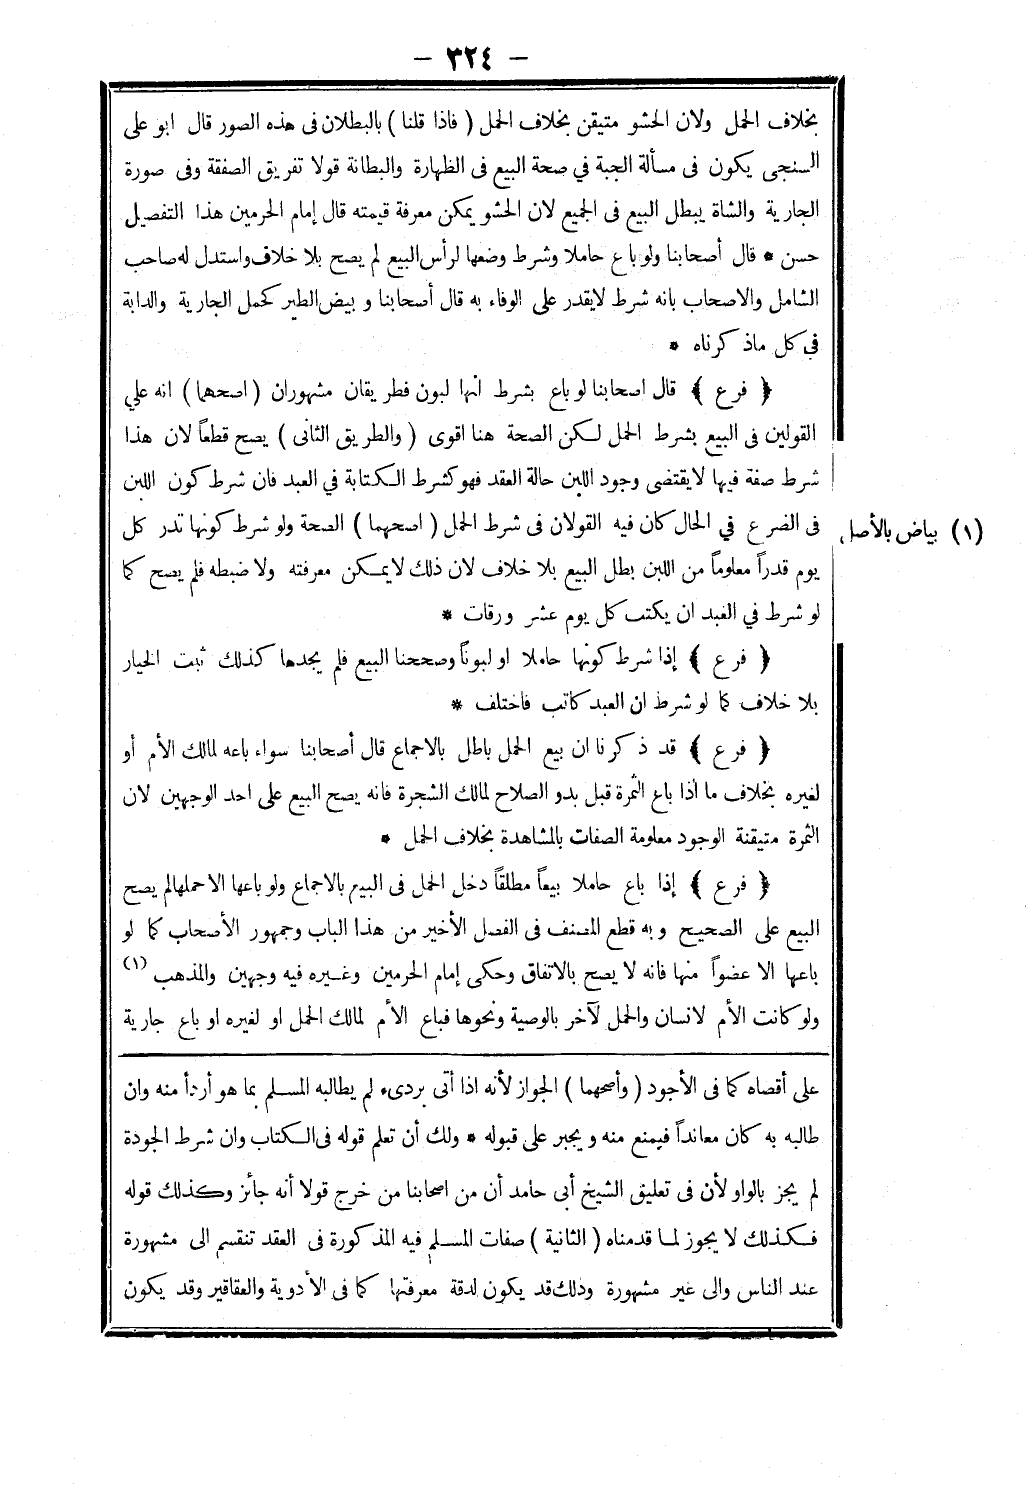 - ٣٢٤ -
بخلاف الحمل ولان الحشو متيقن بخلاف الحمل ( فاذا قلنا ) بالبطلان فى هذه الصور قال ابو على
السنجى يكون فى مسألة الجبة في صحة البيع فى الظهارة والبطانة قولا تفريق الصفقة وفى صورة
الجارية والشاة يبطل البيع فى الجميع لان الحشو يمكن معرفة قيمته قال إمام الحرمين هذا التفصيل
حسن * قال أصحابنا ولو باع حاملا وشرط وضعها لرأس البيع لم يصح بلا خلاف واستدل له صاحب
الشامل والاصحاب بانه شرط لايقدر على الوفاء به قال أصحابنا و بيض الطير كحمل الجارية والدابة
فى كل ماذكرناه *
﴿ فرع ﴾ قال اصحابنا لو باع بشرط انها لبون فطريقان مشهوران ( اصحهما ) انه علي
القولين فى البيع بشرط الحمل لكن الصحة هنا اقوى ( والطريق الثانى ) يصح قطعاً لان هذا
شرط صفة فيها لايقتضى وجود اللبن حالة العقد فهو كشرط الكتابة في العبد فان شرط كون اللبن
فى الضرع في الحال كان فيه القولان فى شرط الحمل ( اصحهما ) الصحة ولو شرط كونها تدر كل
(١) بياض بالأصل
يوم قدراً معلوماً من اللبن بطل البيع بلا خلاف لان ذلك لايمكن معرفته ولا ضبطه فلم يصح كما
لو شرط في العبد ان يكتب كل يوم عشر ورقات *
﴿ فرع ﴾ إذا شرط كونها حاملا او لبوناً وصححنا البيع فلم يجدها كذلك ثبت الخيار
بلا خلاف كما لو شرط ان العبد كاتب فاختلف *
﴿ فرع ﴾ قد ذكرنا ان بيع الحمل باطل بالاجماع قال أصحابنا سواء باعه لمالك الأم أو
لغيره بخلاف ما اذا باع الثمرة قبل بدو الصلاح لمالك الشجرة فانه يصح البيع على احد الوجهين لان
الثمرة متيقنة الوجود معلومة الصفات بالمشاهدة بخلاف الحمل *
﴿ فرع ﴾ إذا باع حاملا بيعاً مطلقاً دخل الحمل فى البيع بالاجماع ولو باعها الاحملها لم يصح
البيع على الصحيح وبه قطع المصنف فى الفصل الأخير من هذا الباب وجمهور الأصحاب كما لو
باعها الا عضواً منها فانه لا يصح بالاتفاق وحكى إمام الحرمين وغيره فيه وجهين والمذهب (١)
ولو كانت الأم لانسان والحمل لآخر بالوصية ونحوها فباع الأم لمالك الحمل او لغيره او باع جارية
على أقصاه كما فى الأجود ( وأصحهما ) الجواز لأنه اذا أتى بردىء لم يطالبه المسلم بما هو أردأ منه وان
طالبه به كان معانداً فيمنع منه ويجبر على قبوله * ولك أن تعلم قوله فى الكتاب وان شرط الجودة
لم يجز بالواو لأن فى تعليق الشيخ أبى حامد أن من اصحابنا من خرج قولا أنه جائز وكذلك قوله
فكذلك لا يجوز لما قدمناه ( الثانية ) صفات المسلم فيه المذكورة فى العقد تنقسم الى مشهورة
عند الناس والى غير مشهورة وذلك قد يكون لدقة معرفتها كما فى الأدوية والعقاقير وقد يكون